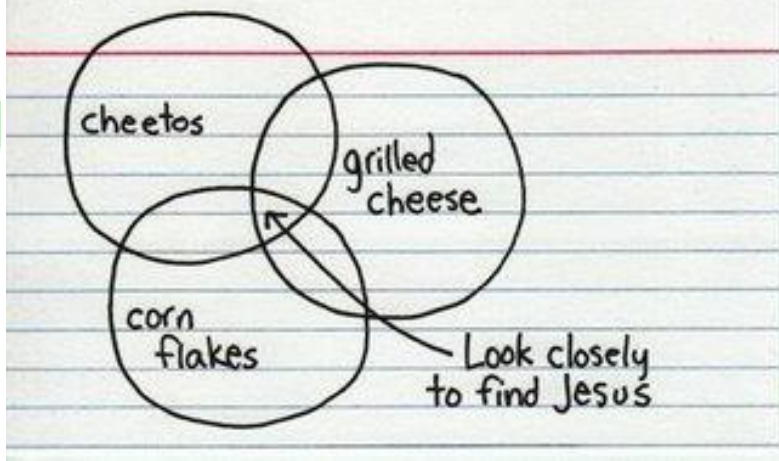 cheetos
grilled
cheese
corn
flakes
Look closely
to find Jesus